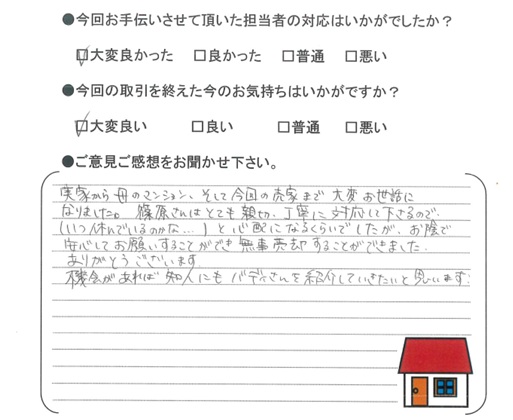 ●今回お手伝いさせて頂いた担当者の対応はいかがでしたか？
☑大変良かった　□良かった　□普通　□悪い
●今回の取引を終えた今のお気持ちはいかがですか？
☑大変良い　□良い　□普通　□悪い
●ご意見ご感想をお聞かせ下さい。
実家から母のマンション、そして今回の売家まで 大変お世話に
なりました。篠原さんはとても親切、丁寧に対応して下さるので、
(いつ休んでいるのかな…)と心配になるくらいでしたが、お陰で
安心してお願いすることができ 無事売却することができました。
ありがとうございます。
機会があれば 知人にも バディさんを紹介していきたいと思います。